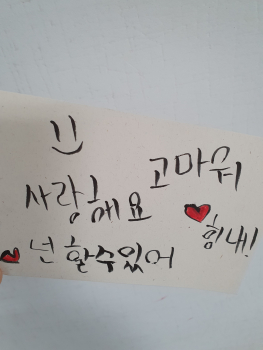 고마워
사랑해요
힘내!
넌 할수있어